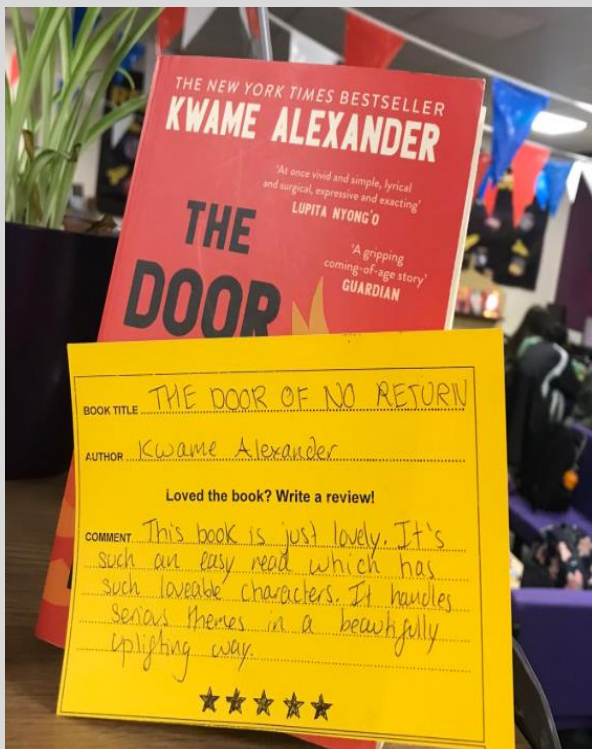 THE NEW YORK TIMES BESTSELLER
KWAME ALEXANDER
'At once vivid and simple, lyrical
and surgical, expressive and exacting'
LUPITA NYONG'O
THE
DOOR
'A gripping
coming-of-age story'
GUARDIAN
BOOK TITLE THE DOOR OF NO RETURN
AUTHOR Kwame Alexander
Loved the book? Write a review!
COMMENT This book is just lovely. It's
such an easy read which has
such loveable characters. It handles
serious themes in a beautifully
uplifting way.